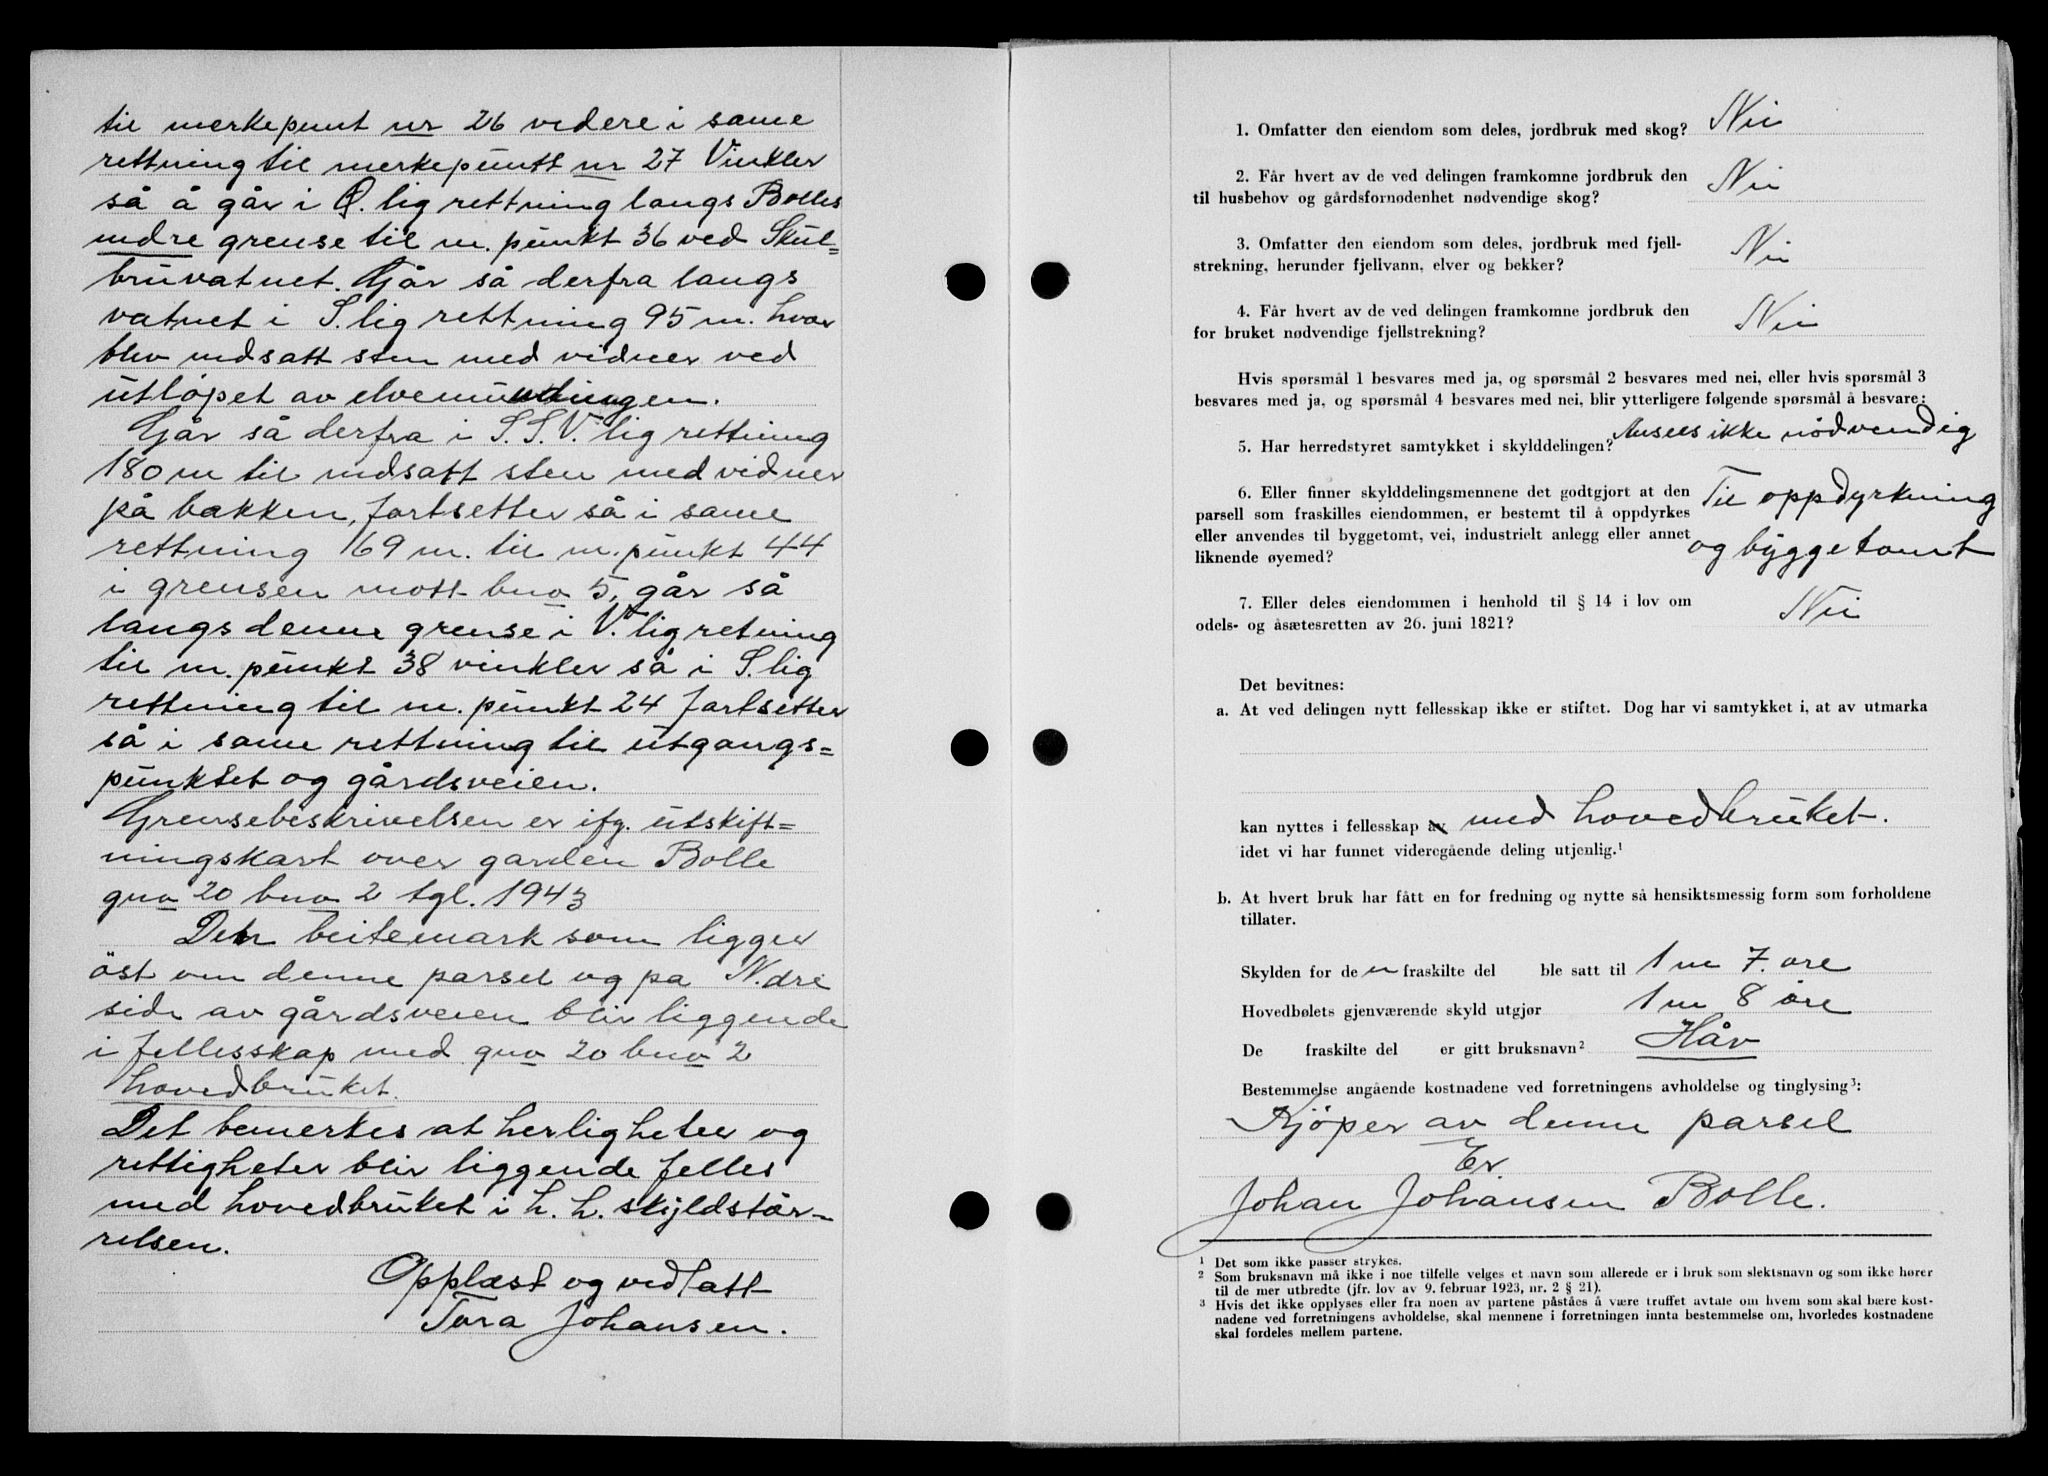 til merkepunt nr 26 videre i same
rettning til merkepuntt nr 27 Vinkler
så å går i Ø. lig rettning langs Bolles
indre grense til m. punkt 36 ved Skul=
bruvatnet. Går så derfra langs
vatnet i S.lig rettning 95 m. hvor
blev nedsatt sten med vidner ved
utløpet av elvemundingen.
Går så derfra i S.S.V. lig rettning
180 m til nedsatt sten med vidner
på bakken, fortsetter så i same
rettning 169 m. til m. punkt 44
i grensen mott bno 5, går så
langs denne grense i V. lig retning
til m. punkt 38 vinkler så i S.lig
rettning til m. punkt 24 fortsetter
så i same rettning til utgangs=
punktet og gårdsveien.
Grensebeskrivelsen er ifg. utskift=
ningskart over garden Bolle
gno 20 bno 2 tgl. 1943
Den beitemark som ligger
øst om denne parsel og pa N.dre
side av gårdsveien blir liggende
i fellesskap med gno 20 bno 2
hovedbruket.
Det bemerkes at herligheter og
rettigheter blir liggende felles
med hovedbruket i h. h. skyldstør-
relsen.
Opplæst og vedtatt
Tora Johansen.
1. Omfatter den eiendom som deles, jordbruk med skog? Nei
2. Får hvert av de ved delingen framkomne jordbruk den
til husbehov og gårdsfornødenhet nødvendige skog? Nei
3. Omfatter den eiendom som deles, jordbruk med fjell-
strekning, herunder fjellvann, elver og bekker? Nei
4. Får hvert av de ved delingen framkomne jordbruk den
for bruket nødvendige fjellstrekning? Nei
Hvis spørsmål 1 besvares med ja, og spørsmål 2 besvares med nei, eller hvis spørsmål 3
besvares med ja, og spørsmål 4 besvares med nei, blir ytterligere følgende spørsmål å besvare:
5. Har herredstyret samtykket i skylddelingen? Ansees ikke nødvendig
6. Eller finner skylddelingsmennene det godtgjort at den
parsell som fraskilles eiendommen, er bestemt til å oppdyrkes
eller anvendes til byggetomt, vei, industrielt anlegg eller annet
liknende øyemed? Til oppdyrkning
og byggetomt
7. Eller deles eiendommen i henhold til § 14 i lov om
odels- og åsætesretten av 26. juni 1821? Nei
Det bevitnes:
a. At ved delingen nytt fellesskap ikke er stiftet. Dog har vi samtykket i, at av utmarka
kan nyttes i fellesskap av med hovedbruket.
idet vi har funnet videregående deling utjenlig.¹
b. At hvert bruk har fått en for fredning og nytte så hensiktsmessig form som forholdene
tillater.
Skylden for de n fraskilte del ble satt til 1 m 7. øre
Hovedbølets gjenværende skyld utgjør 1 m 8 øre
De fraskilte del er gitt bruksnavn² Håv
Bestemmelse angående kostnadene ved forretningens avholdelse og tinglysing³:
Kjøper av denne parsel
Er
Johan Johansen Bolle.
¹ Det som ikke passer strykes.
² Som bruksnavn må ikke i noe tilfelle velges et navn som allerede er i bruk som slektsnavn og som ikke hører
til de mer utbredte (jfr. lov av 9. februar 1923, nr. 2 § 21).
³ Hvis det ikke opplyses eller fra noen av partene påståes å være truffet avtale om hvem som skal bære kost-
nadene ved forretningens avholdelse, skal mennene i forretningen innta bestemmelse om, hvorledes kostnadene
skal fordeles mellem partene.